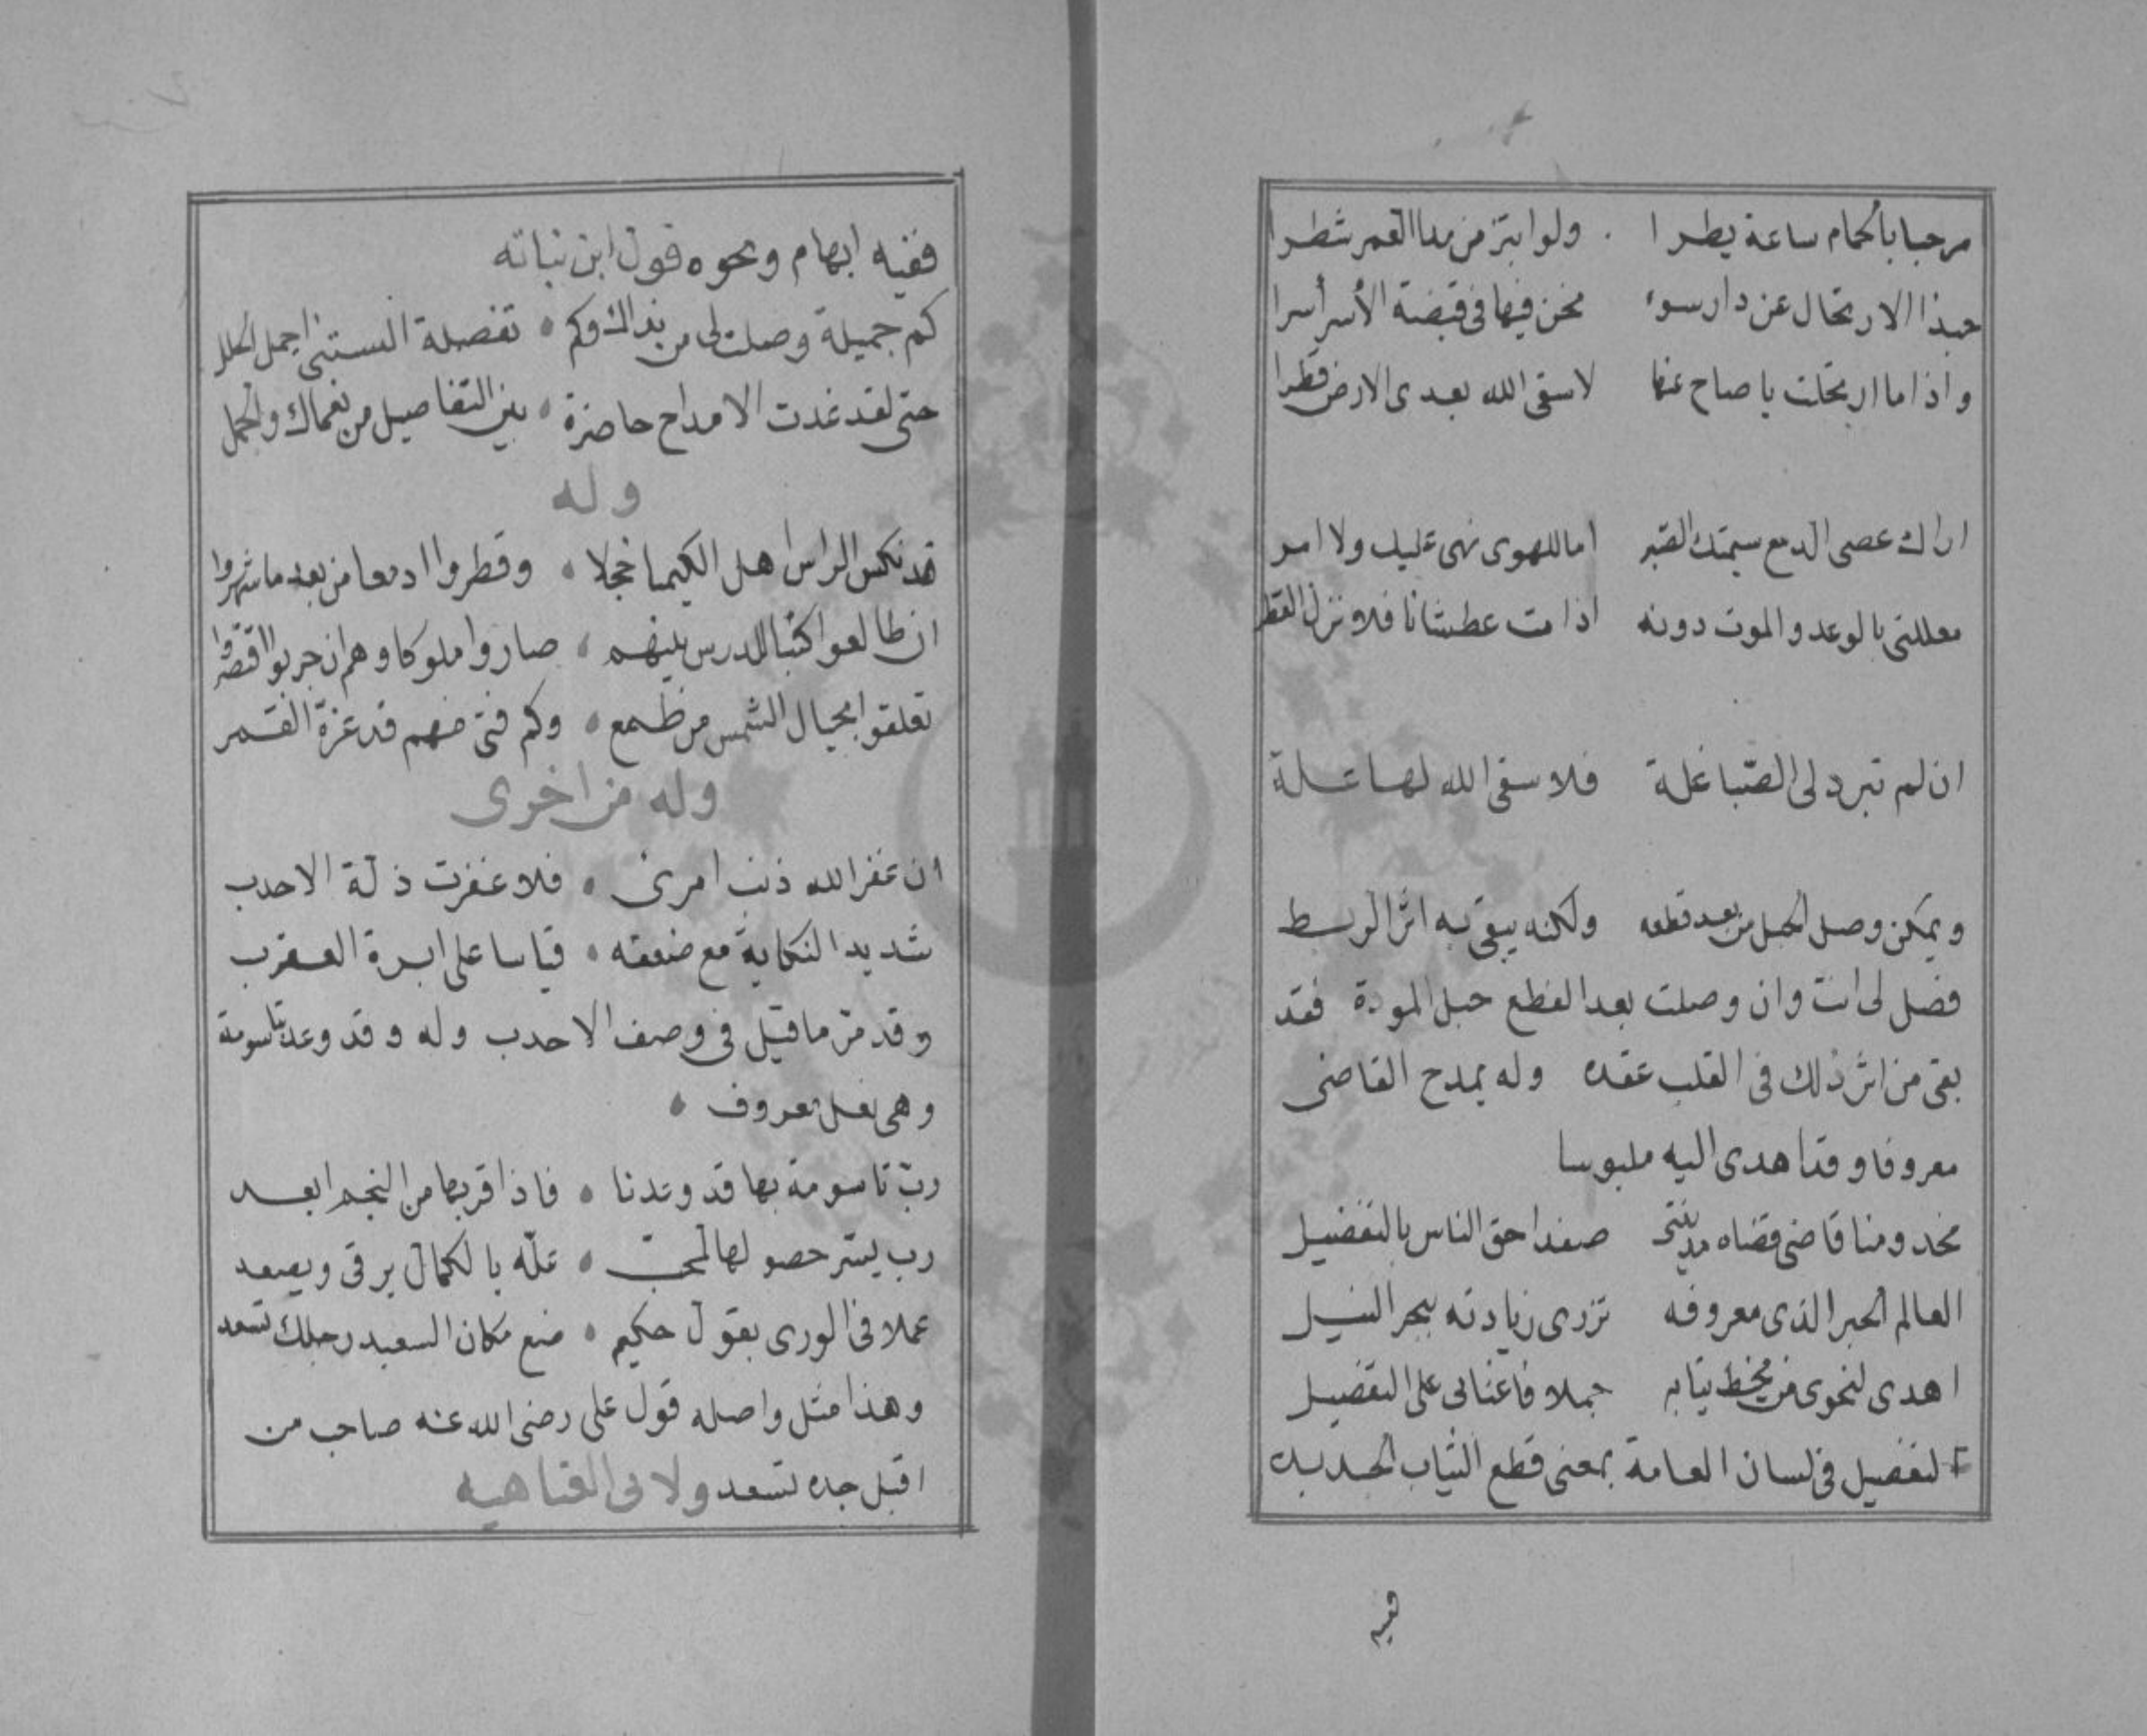 مرحبا بالحمام ساعة يطرا . ولو ابتز من مدا العمر شطرا
حبذا الارتحال عن دار سوء نحن فيها في قبضة الأسر أسرا
واذا ما ارتحلت يا صاح عنها لا سقى الله بعدى الارض قطرا
اراك عصى الدمع سيمتك الصبر اما للهوى نهى عليك ولا امر
معللتى بالوعد والموت دونه اذا مت عطشانا فلا نزل القطر
ان لم تبرد لى الصبا غلة فلا سقى الله لها علة
ويمكن وصل الحبل من بعد قطعه ولكنه يبقى به اثر الربط
فضل لى انت وان وصلت بعد القطع حبل المودة فقد
بقى من اثر ذلك في القلب عقده وله يمدح القاضى
معروفا وقد اهدى اليه ملبوسا
مخدومنا قاضى قضاه صفد احق الناس بالتفضيل
العالم الحبر الذى معروفه تزرى زيادته ببحر النيل
اهدى لنحوى من ثيابه جملا فاغنانى على التفضيل
لتفصيل في لسان العامة بمعنى قطع الثياب الجديده
فيه
ففيه ابهام ونحوه قول ابن نباته
كم جميلة وصلت لى من نداك وكم • تفصلة البستنى اجمل الحلل
حتى لقد غدت الامداح حاضرة • بين التفاصيل من نعماك والجمل
وله
قد نكس الراس اهل الكيميا خجلا • وقطروا ادمعا من بعد ما شهروا
ان طالعوا كتبا للدرس بينهم • صاروا ملوكا وهم ان جربوا افتقروا
تعلقوا بحبال الشمس من طمع • وكم فتى منهم قد غرة القمر
وله من اخرى
ان غفر الله ذنب امرئ • فلا غفرت ذلة الاحدب
شديد النكاية مع ضعفه • قياسا على ابرة العقرب
وقد مر ما قيل في وصف الاحدب وله وقد وعد بتاسومة
وهى نعل معروف •
رب تاسومة بها قد وعدنا • فاذا قربها من النجم ابعد
رب يسر حصولها لمحب • علّه بالكمال يرقى ويصعد
عملا في الورى بقول حكيم • ضع مكان السعيد رجلك تسعد
وهذا مثل واصله قول على رضى الله عنه صاحب من
اقبل جده تسعد ولابى العتاهيه